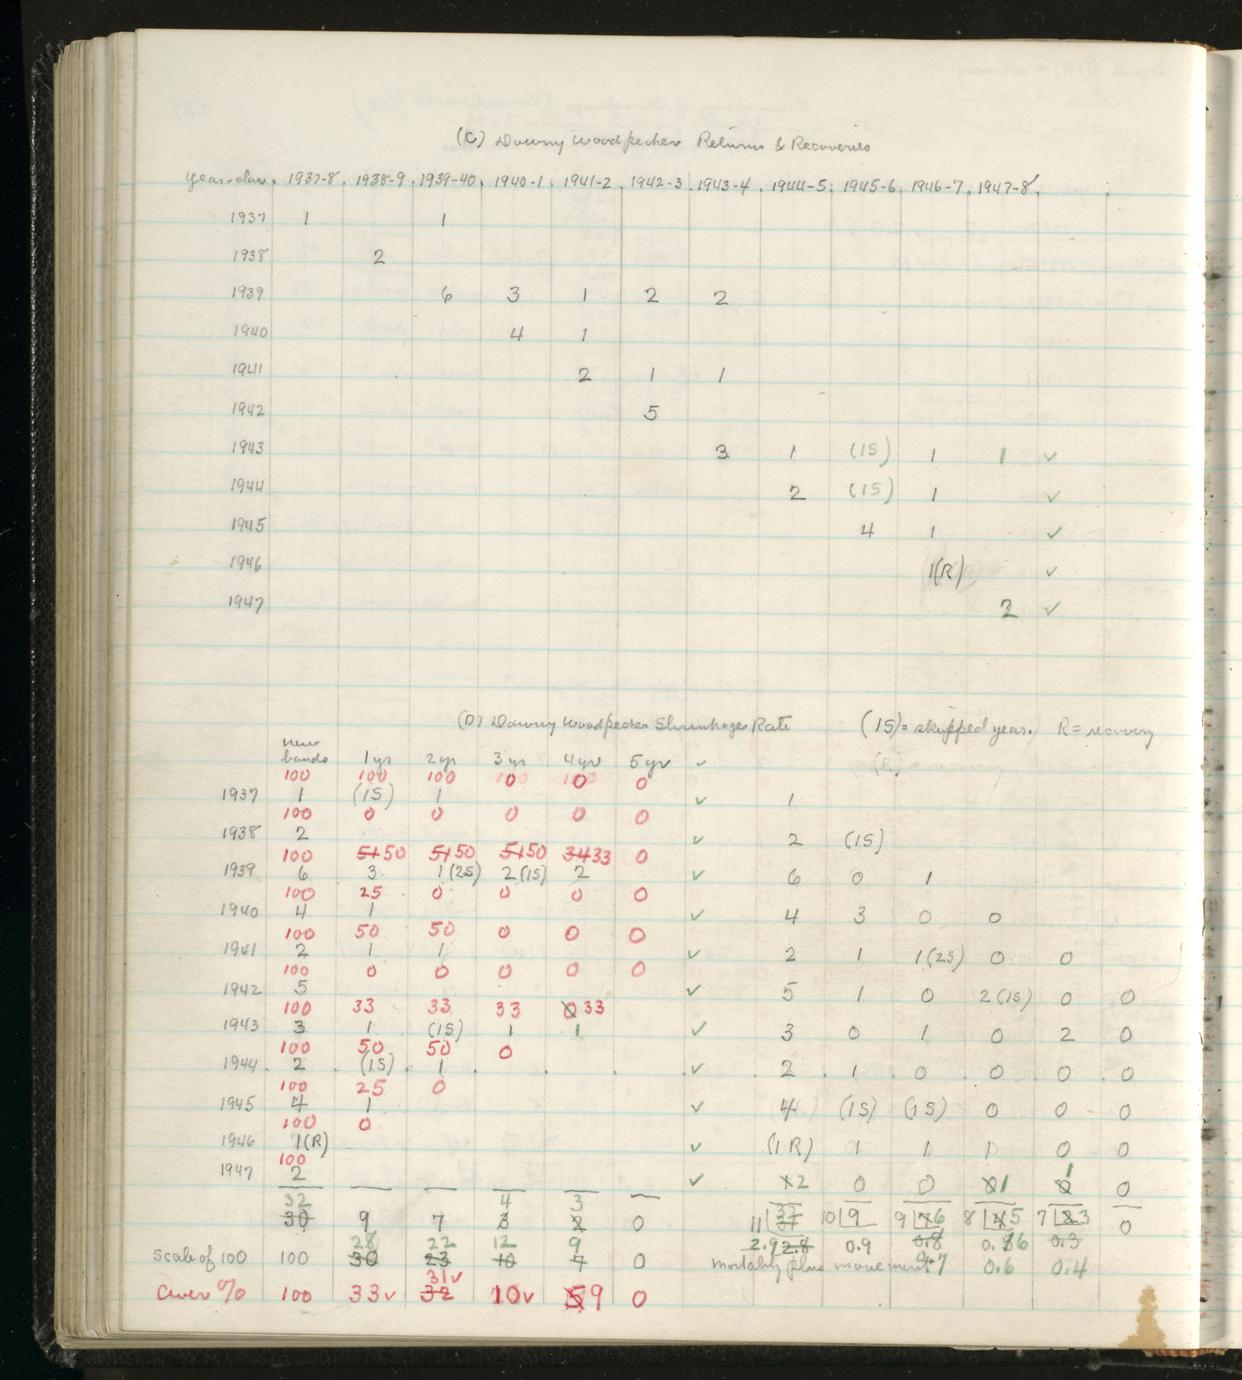 (C) Downy Woodpecker Returns & Recoveries
year-class. 1937-8. 1938-9. 1939-40. 1940-1. 1941-2. 1942-3. 1943-4. 1944-5. 1945-6. 1946-7. 1947-8.
1937 1 1
1938 2
1939 6 3 1 2 2
1940 4 1
1941 2 1 1
1942 5
1943 3 1 (1S) 1 1 ✓
1944 2 (1S) 1 ✓
1945 4 1 ✓
1946 1(R) ✓
1947 2 ✓
(D) Downy Woodpecker Shrinkage Rate (1S) = skipped year. R = recovery
new
bands 1 yr 2 yr 3 yrs 4 yr 5 yr ✓
100 100 100 0 0 0
1937 1 (1S) 1 ✓ 1
100 0 0 0 0 0
1938 2 ✓ 2 (1S)
100 51 50 51 50 51 50 34 33 0
1939 6 3 1(2S) 2(1S) 2 ✓ 6 0 1
100 25 0 0 0 0
1940 4 1 ✓ 4 3 0 0
100 50 50 0 0 0
1941 2 1 1 ✓ 2 1 1(2S) 0 0
100 0 0 0 0 0
1942 5 ✓ 5 1 0 2(1S) 0 0
100 33 33 33 0 33
1943 3 1 (1S) 1 1 ✓ 3 0 1 0 2 0
100 50 50 0
1944 2 (1S) 1 ✓ 2 1 0 0 0 0
100 25 0
1945 4 1 ✓ 4 (1S) (1S) 0 0 0
100 0
1946 1(R) ✓ (1R) 1 1 1 0 0
100
1947 2 ✓ 2 0 0 1 1 0
32 4 3
30 9 7 3 2 0 11 32 10 9 9 6 8 5 7 3 0
28 22 12 9 2.9 2.8 0.9 0.8 0.6 0.3
Scale of 100 100 30 23 10 7 0 mortality plus movement .7 0.6 0.4
31✓
Aver % 100 33✓ 32 10✓ 5 9 0